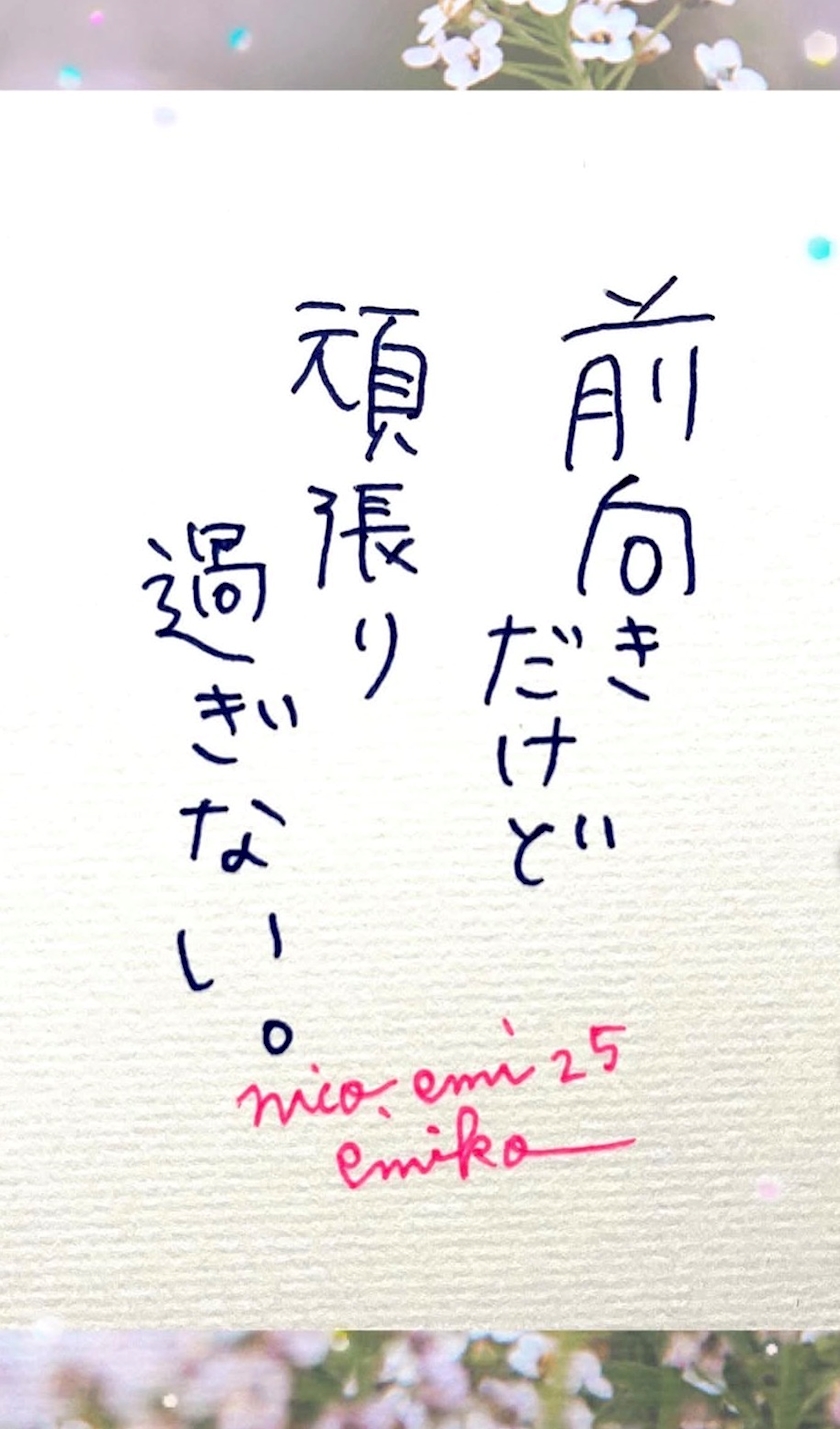 前向き
だけど
頑張り
過ぎない。
nico. emi 25
emiko